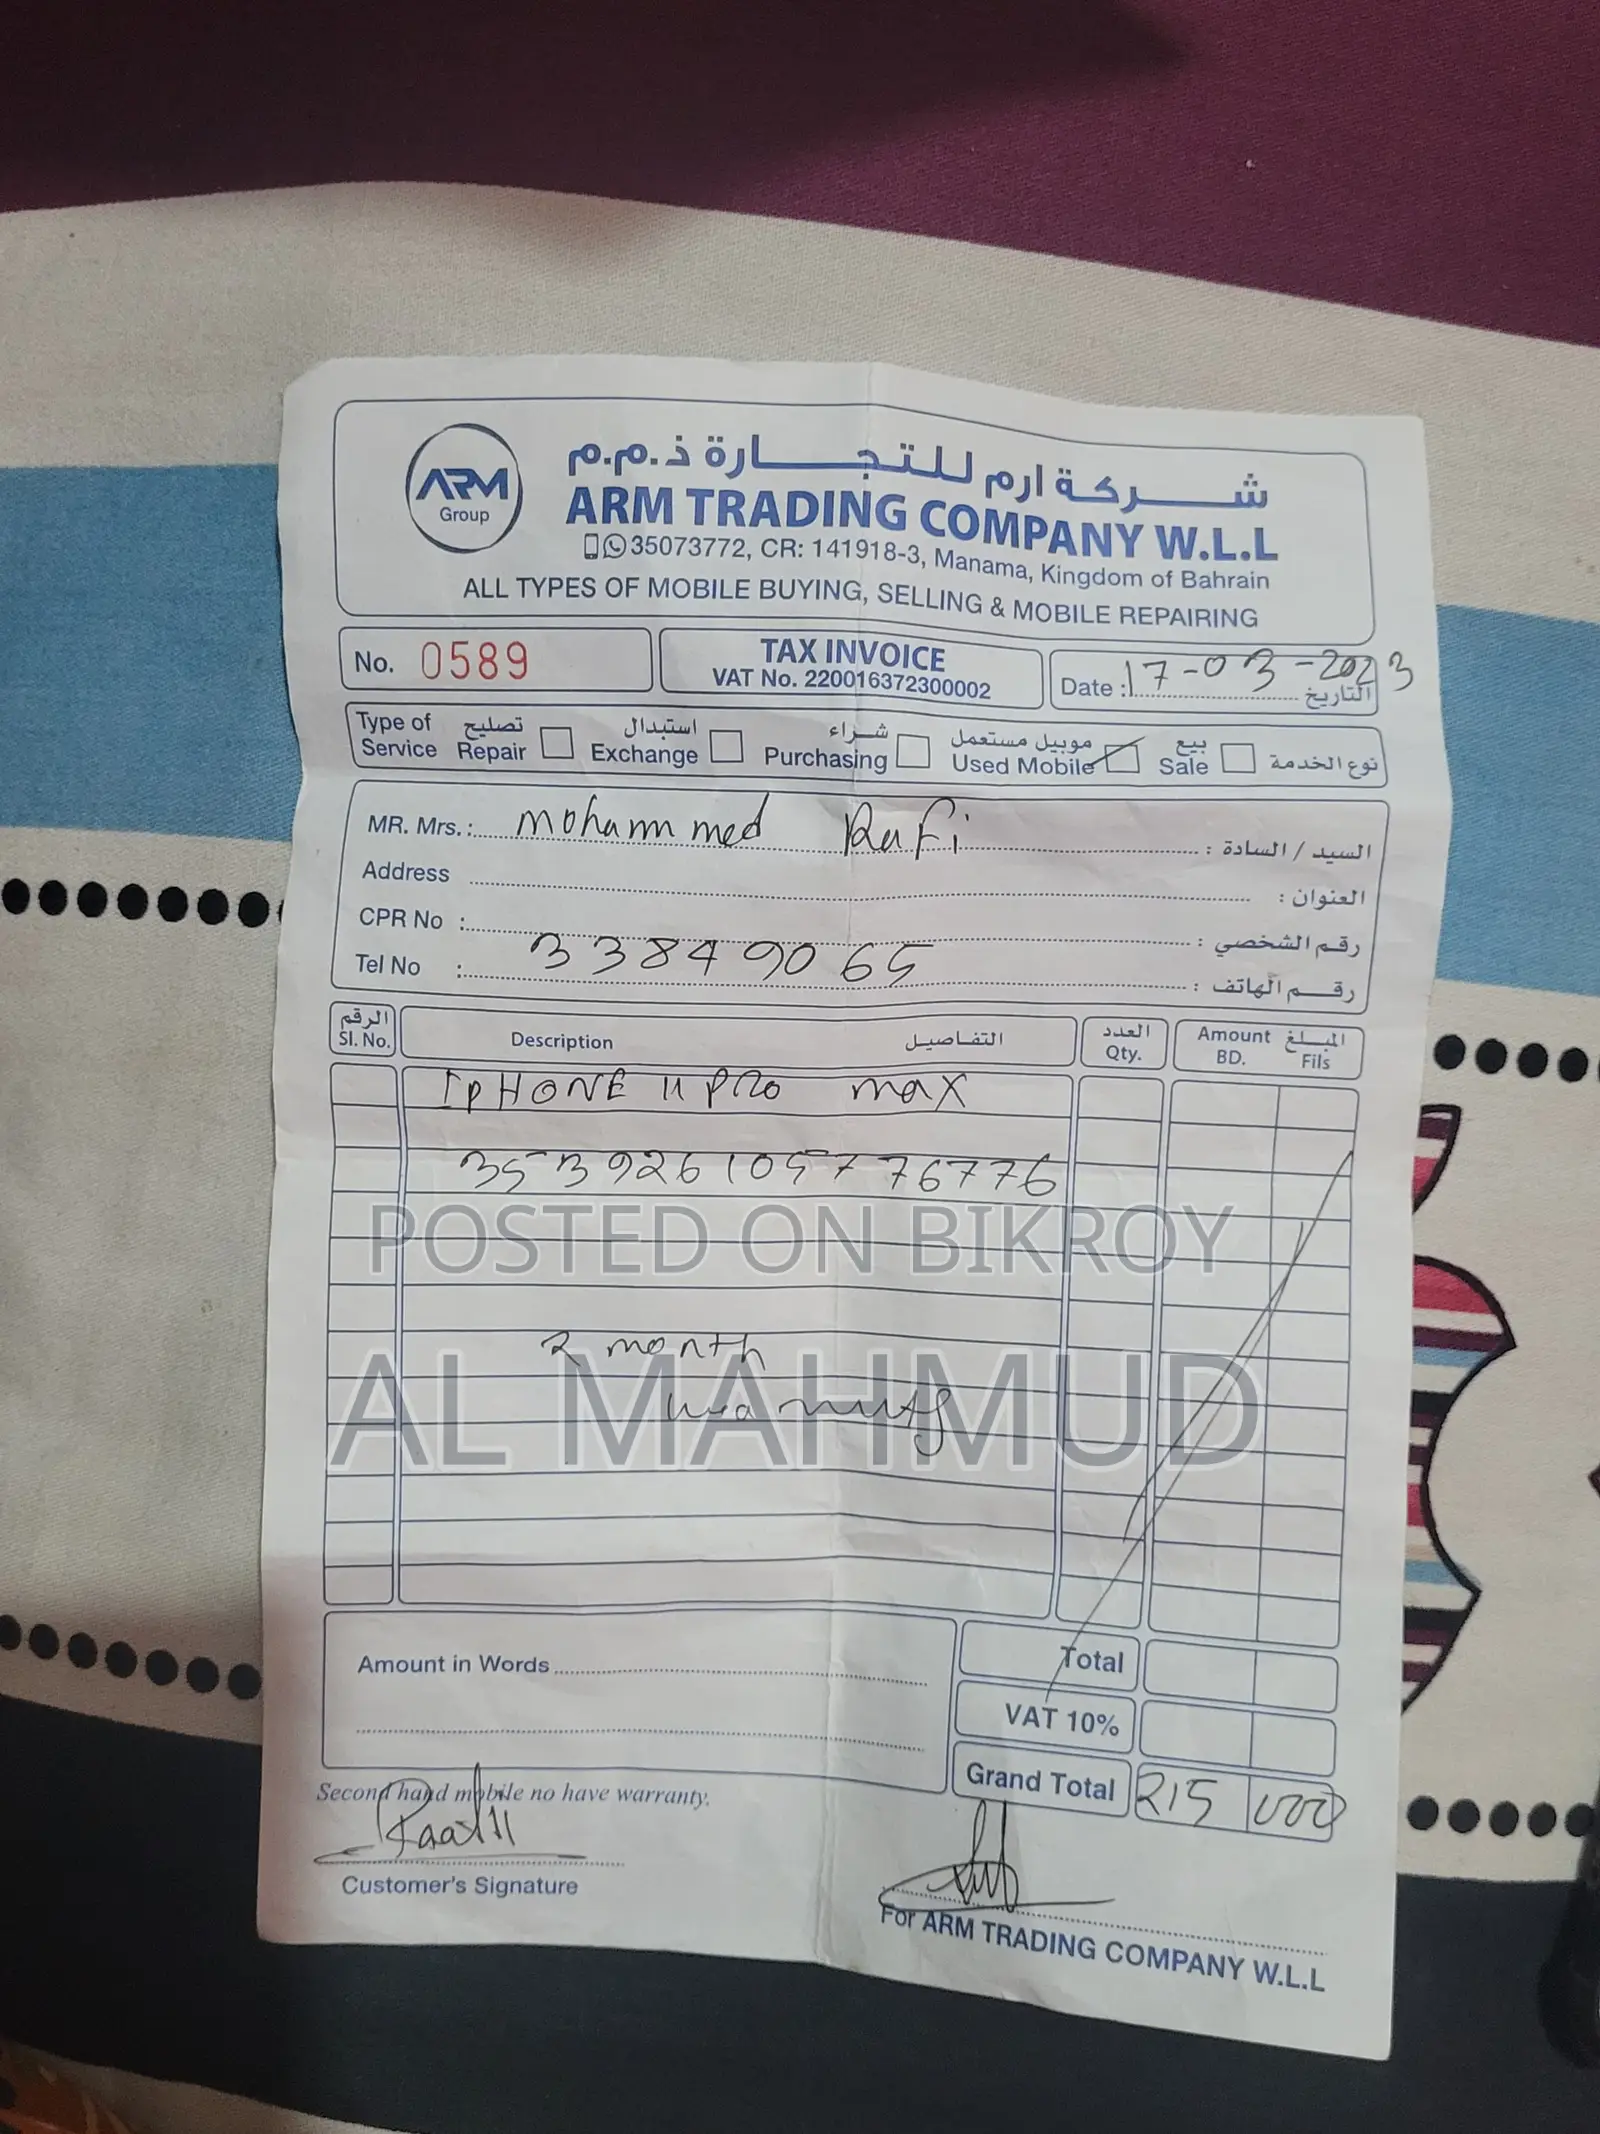 ARM
Group
شركة ارم للتجارة ذ.م.م
ARM TRADING COMPANY W.L.L
35073772, CR: 141918-3, Manama, Kingdom of Bahrain
ALL TYPES OF MOBILE BUYING, SELLING & MOBILE REPAIRING
No. 0589
TAX INVOICE
VAT No. 220016372300002
Date : 17-03-2023 التاريخ
Type of Service تصليح Repair استبدال Exchange شراء Purchasing موبيل مستعمل Used Mobile بيع Sale نوع الخدمة
MR. Mrs.: mohammed Rafi السيد / السادة :
Address العنوان :
CPR No : رقم الشخصي :
Tel No : 33849065 رقم الهاتف :
الرقم Sl. No. Description التفاصيل العدد Qty. Amount المبلغ BD. Fils
IPHONE 11 PRO max
353926105776776
POSTED ON BIKROY
2 month
AL MAHMUD
Total
Amount in Words
VAT 10%
Grand Total 215 000
Second hand mobile no have warranty.
Customer's Signature
For ARM TRADING COMPANY W.L.L